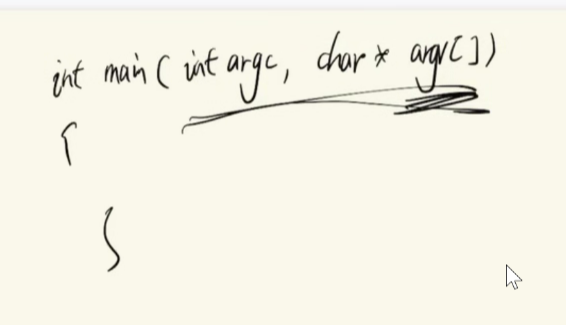 int main( int argc, char* argv[])
{
}